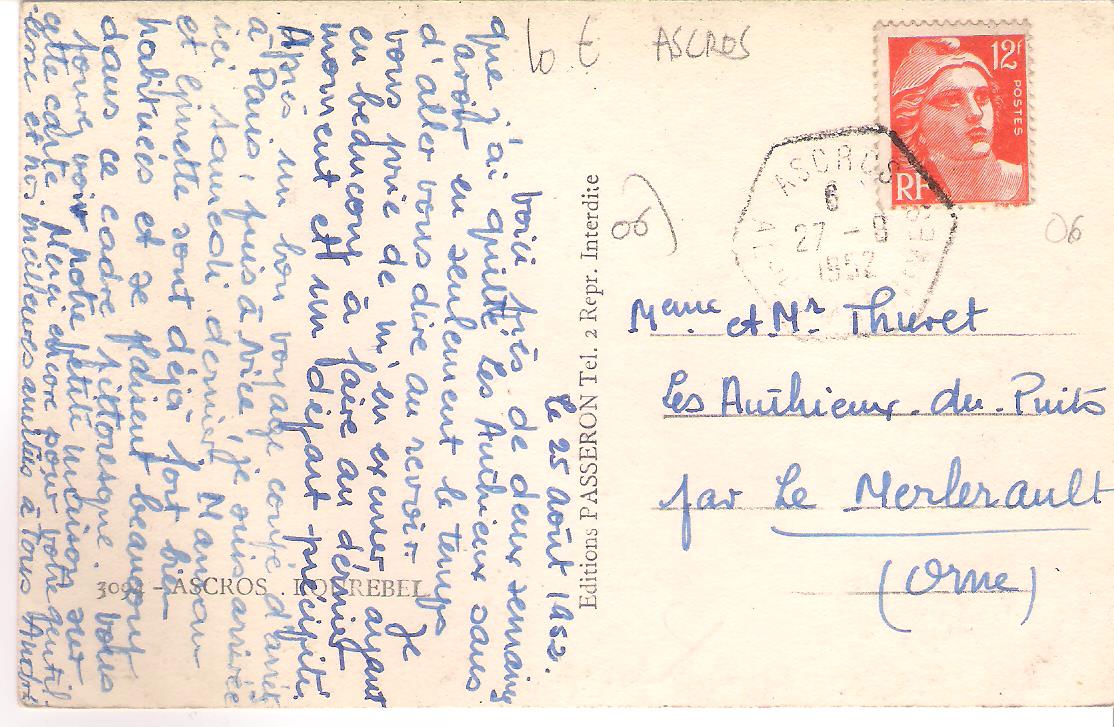 le 25 août 1952.
Voici près de deux semaines
que j'ai quitté les Authieux sans
avoir eu seulement le temps
d'aller vous dire au revoir. Je
vous prie de m'en excuser, ayant
eu beaucoup à faire au dernier
moment et un départ précipité.
Après un bon voyage coupé d'arrêt
à Paris, puis à Nice, je suis arrivée
ici samedi dernier. Maman
et Ginette sont déjà fort bien
habituées et se plaisent beaucoup
dans ce cadre pittoresque. Vous
pouvez voir notre petite maison sur
cette carte. Merci encore pour votre gentil
et nos meilleures amitiés à tous André
10 €
ASCROS
12f
POSTES
RF
ASCROS
6
27 - 8
1952
06)
06
Mme et Mr Thuret
Les Authieux-du-Puits
par Le Merlerault
(Orne)
Editions PASSERON Tel. 2 Repr. Interdite
3094 - ASCROS . ROUREBEL